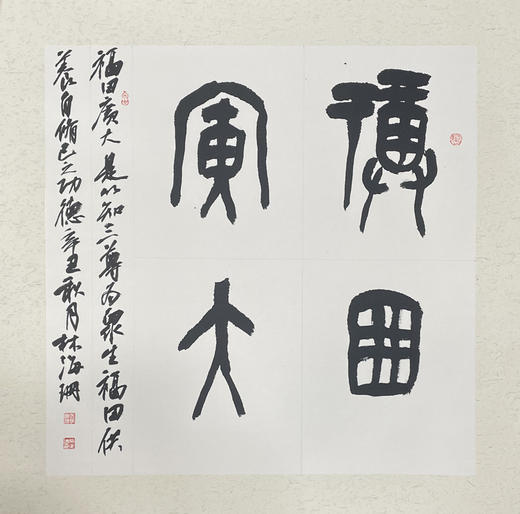 福田
廣大
福田廣大是以知三尊为衆生福田供
養自脩己之功德辛丑秋月林海珊